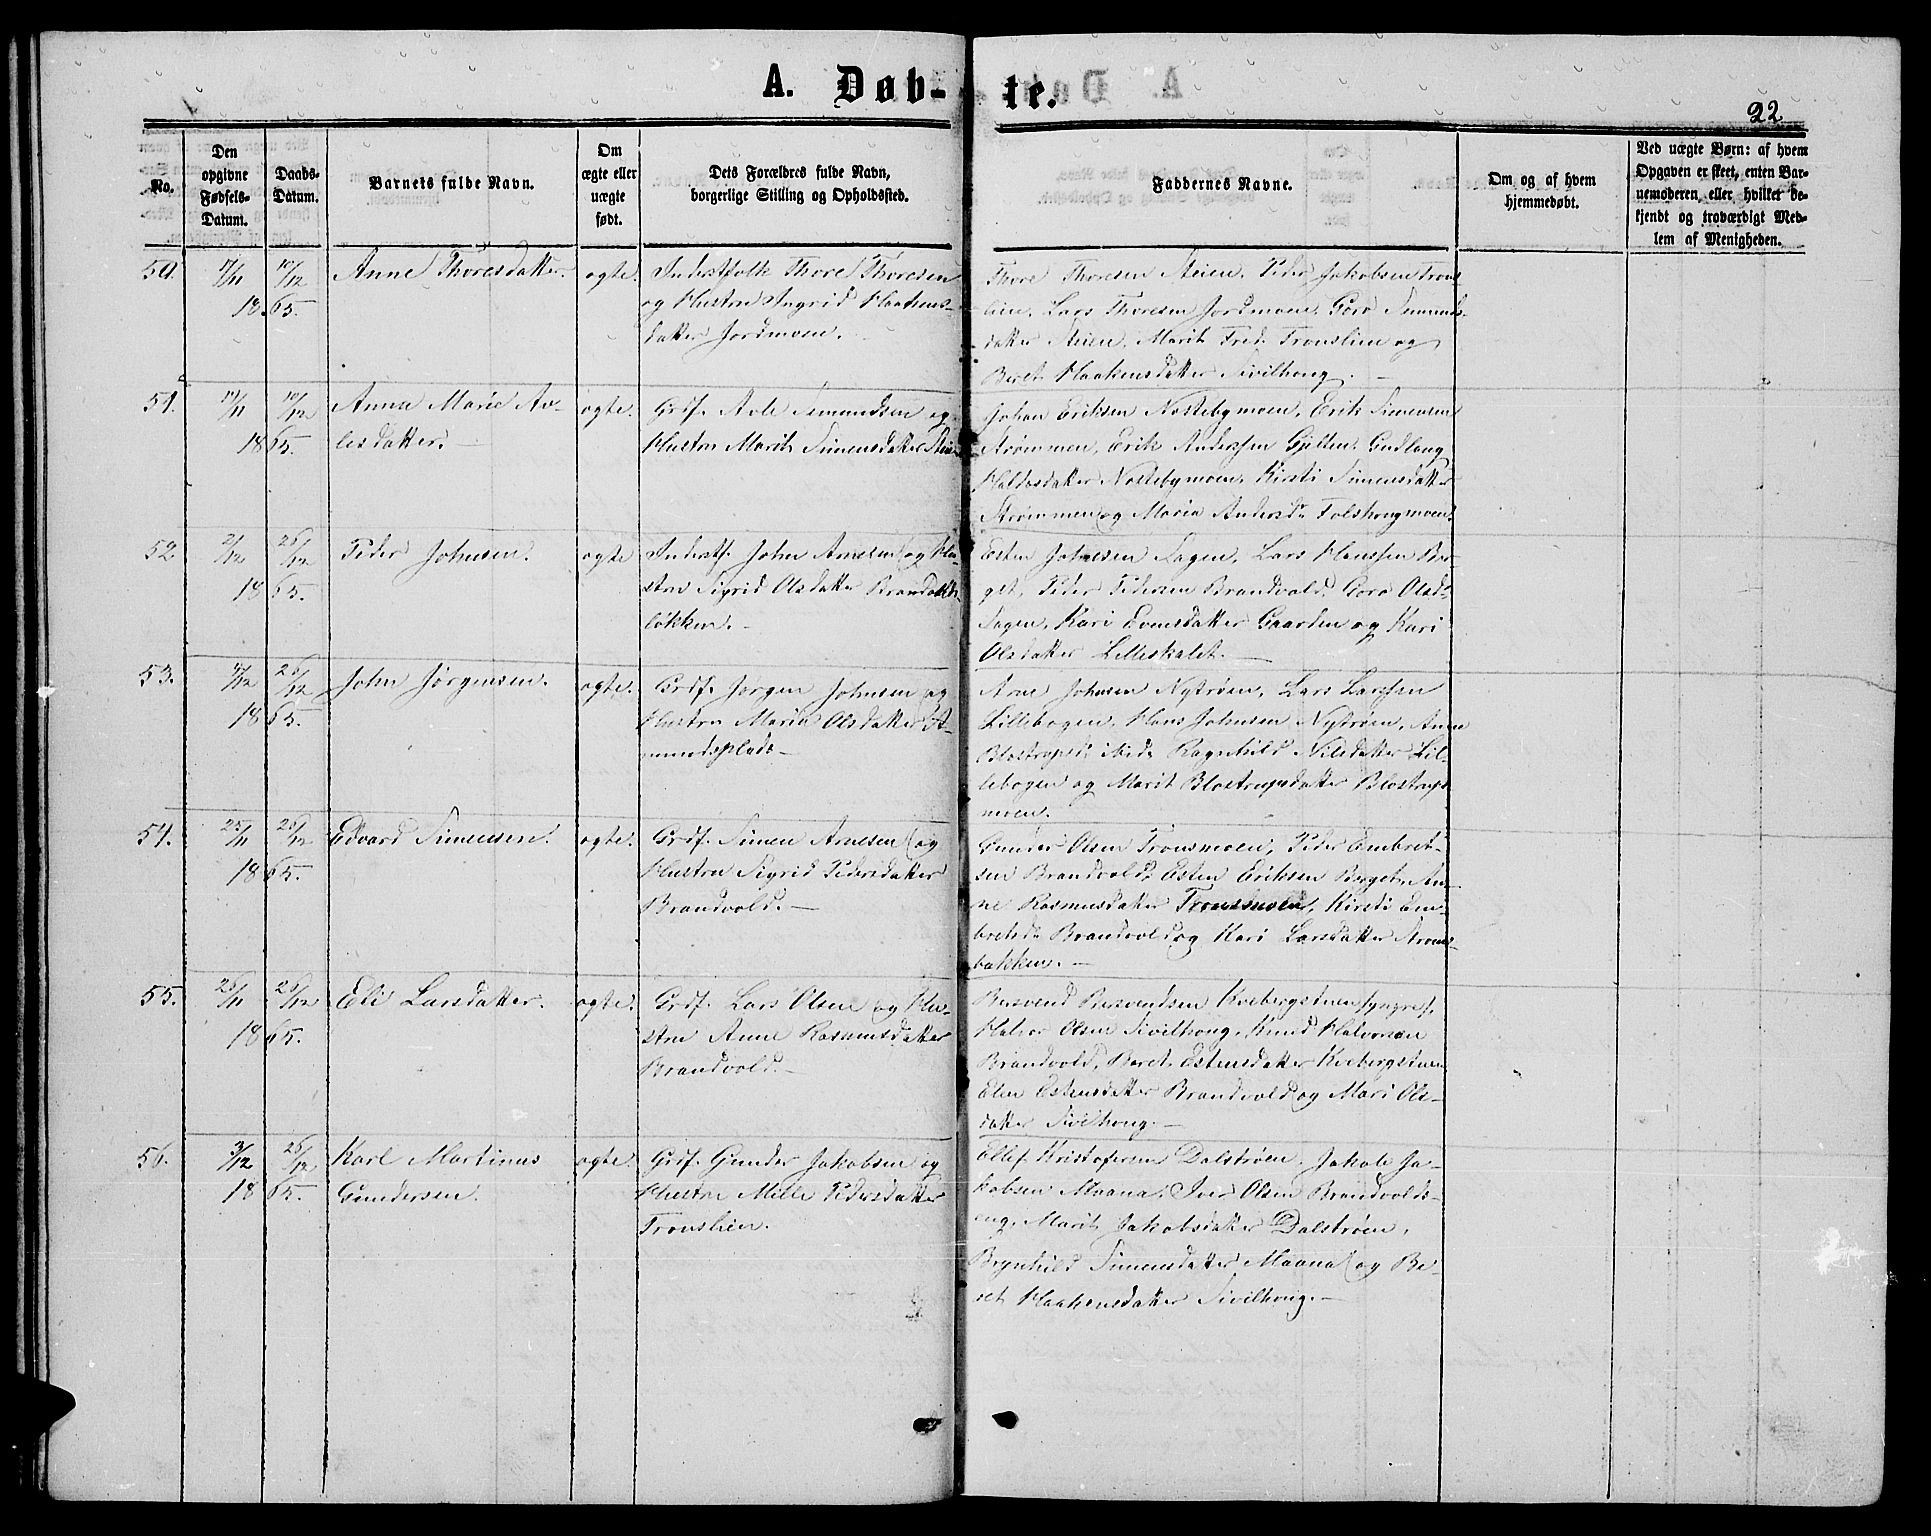 A. Døb-
te.
22
No.
Den opgivne Fødsels-Datum.
Daabs-Datum.
Barnets fulde Navn.
Om ægte eller uægte født.
Dets Forældres fulde Navn, borgerlige Stilling og Opholdssted.
Faddernes Navne.
Om og af hvem hjemmedøbt.
Ved uægte Børn: af hvem Opgaven er skeet, enten Barnemoderen, eller hvilket bekjendt og troværdigt Medlem af Menigheden.
50.
17/11 10/12
1865.
Anne Thoresdatter.
ægte.
Inderstfolk Thore Thoresen
og Hustru Ingrid Haakens-
datter Jordmoen.
Thore Thoresen Steien, Peder Jakobsen Trons-
lien, Lars Thoresen Jordmoen, Goro Simens-
datter Steien, Marit Fred. Tronslien og
Beret Haakensdatter Sivilhoug.
51.
19/11 10/12
1865.
Anna Marie Av-
lesdatter.
ægte.
Grdf. Avle Semundsen og
Hustru Marit Simensdatter
Johan Eriksen Nostebymoen, Erik Simensen
Strømmen, Erik Anderssen Gjelten, Gudlaug
Haldosdatter Nostebymoen, Kirsti Simensdatter
Strømmen og Maria Andersdr Folshougmoen.
52
2/12 26/12
1865.
Peder Johnsen.
ægte
Inderstf. John Arnesen og Hu-
stru Sigrid Olsdatter Brandvold-
løkken.
Esten Johnssen Sagen, Lars Hanssen Ber-
get, Peder Pedersen Brandvold, Goro Olsdr
Sagen, Kari Evensdatter Gaarden og Kari
Olsdatter Lilleskalet.
53.
4/12 26/12
1865.
John Jørgensen.
ægte.
Grdf. Jørgen Johnsen og
Hustru Maria Olsdatter A-
mundsplads
Arne Johnsen Nystrøen, Lars Larssen
Lillebogen, Hans Johnsen Nystrøen, Anne
Blostrupsdr ibid. Ragnhild Nilsdatter Lil-
lebogen og Marit Blostrupsdatter Blostrups-
moen.
54.
25/11 26/12
1865.
Edvard Simensen.
ægte.
Grdf. Simen Arnesen og
Hustru Sigrid Pedersdatter
Brandvold.
Gunder Olsen Tronsmoen, Peder Embret-
sen Brandvold, Esten Eriksen Berget, An-
ne Rasmusdatter Tronsmoen, Kirsti Em-
bretsdr Brandvold og Kari Larsdatter Strøms-
bakken.
55.
26/11 26/12
1865.
Eli Larsdatter.
ægte.
Grdf. Lars Olsen og Hu-
stru Anne Rasmusdatter
Brandvold.
Bersvend Bersvendsen Kvebergstuen yngre,
Halvor Olsen Sivilhoug, Knud Halvorsen
Brandvold, Beret Estensdatter Kvebergstuen
Elen Estensdatter Brandvold og Mari Ols-
datter Sivilhoug.
56.
3/12 26/12
1865.
Karl Martinus
Gundersen.
ægte.
Grdf. Gunder Jakobsen og
Hustru Mille Pedersdatter
Tronslien.
Ellef Kristofersen Dalstrøen, Jakob Ja-
kobsen Maana, Iver Olsen Brandvolds-
eng, Marit Jakobsdatter Dalstrøen,
Brynhild Simensdatter Maana og Be-
ret Haakensdatter Sivilhoug.